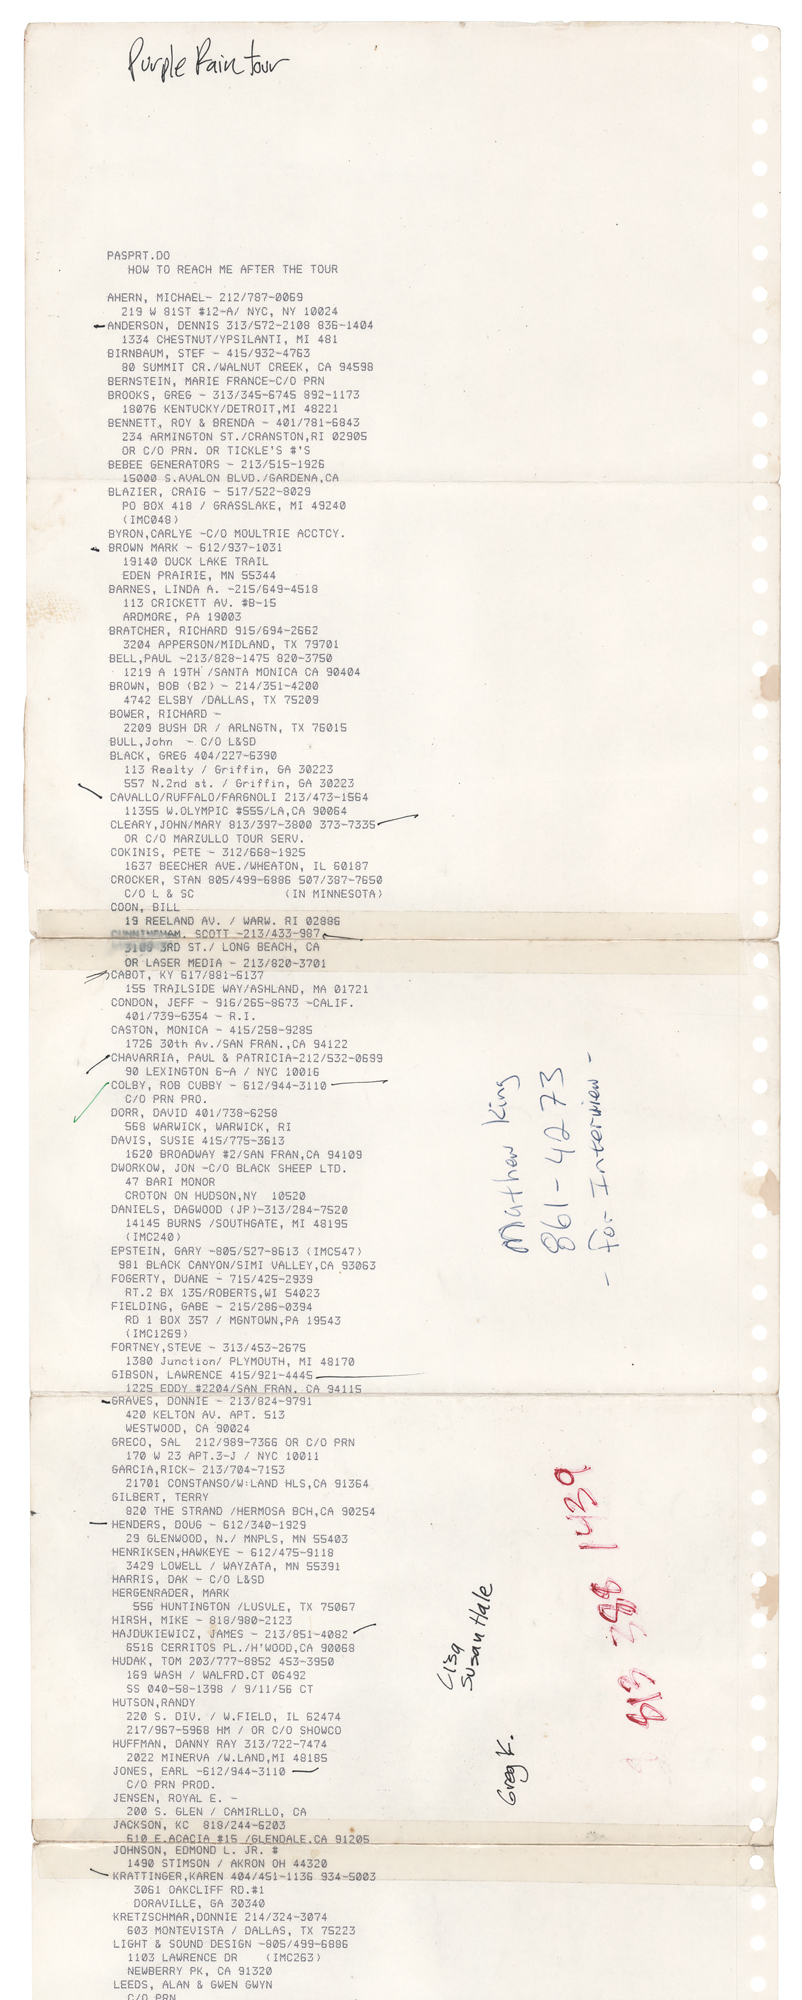 Purple Rain tour
PASPRT.DO
HOW TO REACH ME AFTER THE TOUR
AHERN, MICHAEL- 212/787-0069
219 W 81ST #12-A/ NYC, NY 10024
ANDERSON, DENNIS 313/572-2108 836-1404
1334 CHESTNUT/YPSILANTI, MI 481
BIRNBAUM, STEF - 415/932-4763
80 SUMMIT CR./WALNUT CREEK, CA 94598
BERNSTEIN, MARIE FRANCE-C/O PRN
BROOKS, GREG - 313/345-6745 892-1173
18076 KENTUCKY/DETROIT,MI 48221
BENNETT, ROY & BRENDA - 401/781-6843
234 ARMINGTON ST./CRANSTON,RI 02905
OR C/O PRN. OR TICKLE'S #'S
BEBEE GENERATORS - 213/515-1926
15000 S.AVALON BLVD./GARDENA,CA
BLAZIER, CRAIG - 517/522-8029
PO BOX 418 / GRASSLAKE, MI 49240
(IMC048)
BYRON,CARLYE -C/O MOULTRIE ACCTCY.
BROWN MARK - 612/937-1031
19140 DUCK LAKE TRAIL
EDEN PRAIRIE, MN 55344
BARNES, LINDA A. -215/649-4518
113 CRICKETT AV. #B-15
ARDMORE, PA 19003
BRATCHER, RICHARD 915/694-2662
3204 APPERSON/MIDLAND, TX 79701
BELL,PAUL -213/828-1475 820-3750
1219 A 19TH /SANTA MONICA CA 90404
BROWN, BOB (B2) - 214/351-4200
4742 ELSBY /DALLAS, TX 75209
BOWER, RICHARD -
2209 BUSH DR / ARLNGTN, TX 76015
BULL,John - C/O L&SD
BLACK, GREG 404/227-6390
113 Realty / Griffin, GA 30223
557 N.2nd st. / Griffin, GA 30223
CAVALLO/RUFFALO/FARGNOLI 213/473-1564
11355 W.OLYMPIC #555/LA,CA 90064
CLEARY,JOHN/MARY 813/397-3800 373-7335
OR C/O MARZULLO TOUR SERV.
COKINIS, PETE - 312/668-1925
1637 BEECHER AVE./WHEATON, IL 60187
CROCKER, STAN 805/499-6886 507/387-7650
C/O L & SC (IN MINNESOTA)
COON, BILL
19 REELAND AV. / WARW. RI 02886
CUNNINGHAM, SCOTT -213/433-987
3109 3RD ST./ LONG BEACH, CA
OR LASER MEDIA - 213/820-3701
CABOT, KY 617/881-6137
155 TRAILSIDE WAY/ASHLAND, MA 01721
CONDON, JEFF - 916/265-8673 -CALIF.
401/739-6354 - R.I.
CASTON, MONICA - 415/258-9285
1726 30th Av./SAN FRAN.,CA 94122
CHAVARRIA, PAUL & PATRICIA-212/532-0699
90 LEXINGTON 6-A / NYC 10016
COLBY, ROB CUBBY - 612/944-3110
C/O PRN PRO.
DORR, DAVID 401/738-6258
568 WARWICK, WARWICK, RI
DAVIS, SUSIE 415/775-3613
1620 BROADWAY #2/SAN FRAN,CA 94109
DWORKOW, JON -C/O BLACK SHEEP LTD.
47 BARI MONOR
CROTON ON HUDSON,NY 10520
DANIELS, DAGWOOD (JP)-313/284-7520
14145 BURNS /SOUTHGATE, MI 48195
(IMC240)
EPSTEIN, GARY -805/527-8613 (IMC547)
981 BLACK CANYON/SIMI VALLEY,CA 93063
FOGERTY, DUANE - 715/425-2939
RT.2 BX 135/ROBERTS,WI 54023
FIELDING, GABE - 215/286-0394
RD 1 BOX 357 / MGNTOWN,PA 19543
(IMC1269)
FORTNEY,STEVE - 313/453-2675
1380 Junction/ PLYMOUTH, MI 48170
GIBSON, LAWRENCE 415/921-4445
1225 EDDY #2204/SAN FRAN. CA 94115
GRAVES, DONNIE - 213/824-9791
420 KELTON AV. APT. 513
WESTWOOD, CA 90024
GRECO, SAL 212/989-7366 OR C/O PRN
170 W 23 APT.3-J / NYC 10011
GARCIA,RICK- 213/704-7153
21701 CONSTANSO/W:LAND HLS,CA 91364
GILBERT, TERRY
820 THE STRAND /HERMOSA BCH,CA 90254
HENDERS, DOUG - 612/340-1929
29 GLENWOOD, N./ MNPLS, MN 55403
HENRIKSEN,HAWKEYE - 612/475-9118
3429 LOWELL / WAYZATA, MN 55391
HARRIS, DAK - C/O L&SD
HERGENRADER, MARK
556 HUNTINGTON /LUSVLE, TX 75067
HIRSH, MIKE - 818/980-2123
HAJDUKIEWICZ, JAMES - 213/851-4082
6516 CERRITOS PL./H'WOOD,CA 90068
HUDAK, TOM 203/777-8852 453-3950
169 WASH / WALFRD.CT 06492
SS 040-58-1398 / 9/11/56 CT
HUTSON,RANDY
220 S. DIV. / W.FIELD, IL 62474
217/967-5968 HM / OR C/O SHOWCO
HUFFMAN, DANNY RAY 313/722-7474
2022 MINERVA /W.LAND,MI 48185
JONES, EARL -612/944-3110
C/O PRN PROD.
JENSEN, ROYAL E. -
200 S. GLEN / CAMIRLLO, CA
JACKSON, KC 818/244-6203
610 E.ACACIA #15 /GLENDALE.CA 91205
JOHNSON, EDMOND L. JR. #
1490 STIMSON / AKRON OH 44320
KRATTINGER,KAREN 404/451-1136 934-5003
3061 OAKCLIFF RD.#1
DORAVILLE, GA 30340
KRETZSCHMAR,DONNIE 214/324-3074
603 MONTEVISTA / DALLAS, TX 75223
LIGHT & SOUND DESIGN -805/499-6886
1103 LAWRENCE DR (IMC263)
NEWBERRY PK, CA 91320
LEEDS, ALAN & GWEN GWYN
C/O PRN
Mathew King
861-4273
- For Interview -
Lisa
Susan Hale
Greg K.
813 398 1439